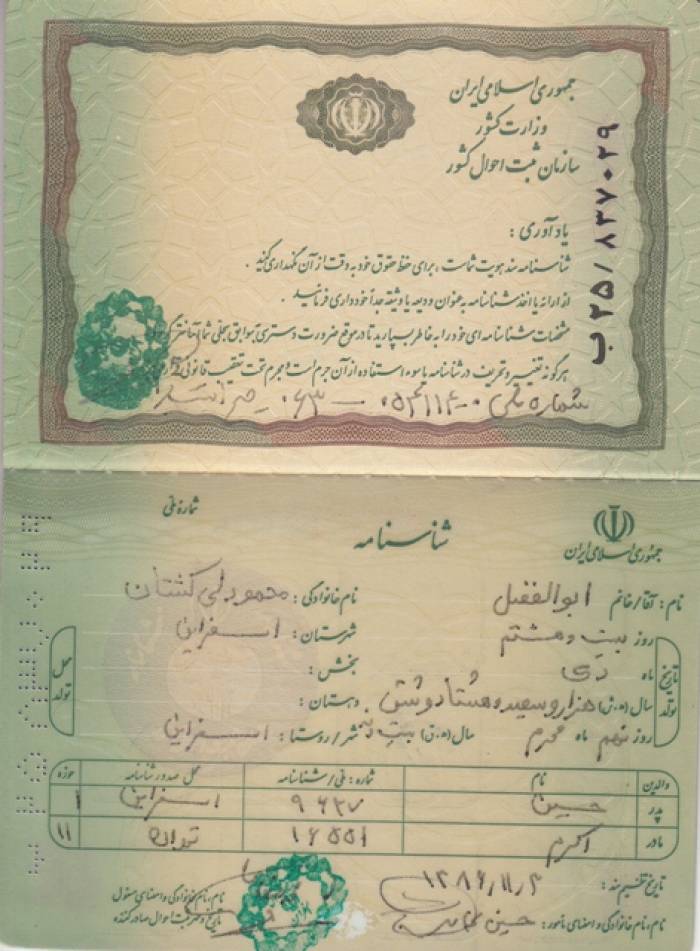 جمهوری اسلامی ایران
وزارت کشور
سازمان ثبت احوال کشور
ب ۲۵/ ۸۳۷۰۲۹
یادآوری :
شناسنامه سند هویت شماست ، برای حفظ حقوق خود به دقت از آن نگهداری کنید .
از ارائه یا اخذ شناسنامه به عنوان ودیعه یا وثیقه جداً خودداری فرمائید .
مشخصات شناسنامه ای خود را به خاطر بسپارید تا در موقع ضرورت دسترسی به سوابق سجلی شما آسانتر گردد
هرگونه تغییر و تحریف در شناسنامه یا سوء استفاده از آن جرم است و مجرم تحت تعقیب قانونی
شماره ملی
شماره ملی
شناسنامه
جمهوری اسلامی ایران
نام : آقا/خانم ابوالفضل نام خانوادگی : محمودی کشتان
تاریخ تولد روز بیست و هشتم محل تولد شهرستان : اسفراین
ماه دی بخش :
سال (ه.ش) هزار و سیصد و هشتاد و شش دهستان :
روز نهم ماه محرم سال (ه.ق) شهر / روستا : اسفراین
والدین نام شماره : ملی/شناسنامه محل صدور شناسنامه حوزه
پدر حسین ۹۶۲۷ اسفراین ۱
مادر اکرم ۱۶۵۵۱ تهران ۱۱
تاریخ تنظیم سند : ۱۳۸۶,۱۱,۲
نام، نام خانوادگی و امضای مأمور : حسین
نام، نام خانوادگی و امضای مسئول
تاریخ و مهر ثبت احوال صادرکننده